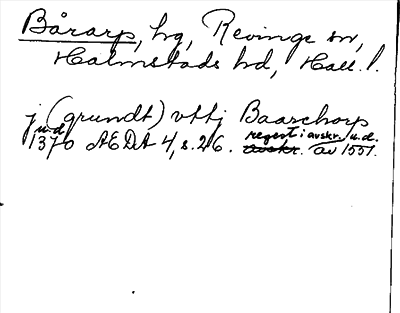 Bårarp, hg, Revinge sn,
Halmstads hd, Hall. l.
j (grundt) vthj Baarthorp
u.d.
1370 ÆDA 4, s. 26. regest i avskr. u.d.
avskr. av 1551.